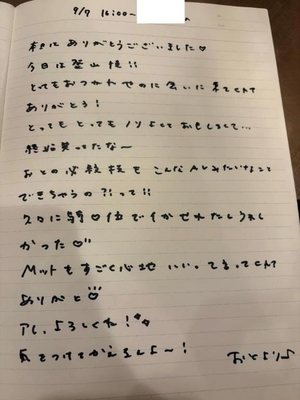 9/7 16:00~
本日はありがとうございました♡
今日は登山後!!
とってもおつかれなのに会いに来てくれて
ありがとう!
とっても とっても ノリよくて おもしろくて…
終始笑ってたな〜
おとの必殺技を こんなAVみたいなこと
できちゃうの?!って!!
久々に 位でイかせれたしうれし
かった
Mットもすごく心地いいって言ってくれて
ありがと
アレ、よろしくね!
気をつけてかえるんよ〜!
おとより